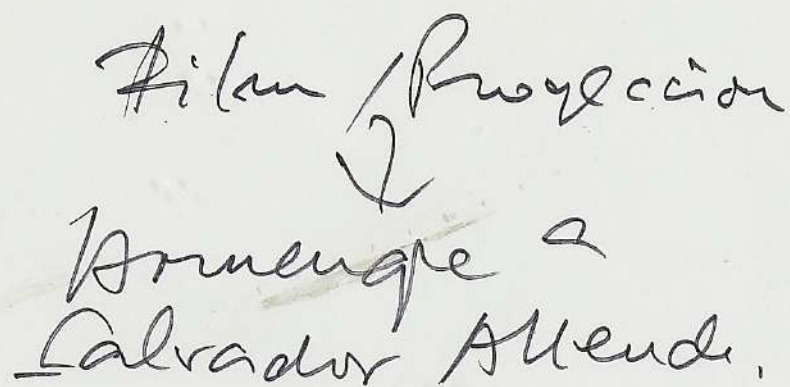 Film / Proyección
Homenaje a
Salvador Allende.